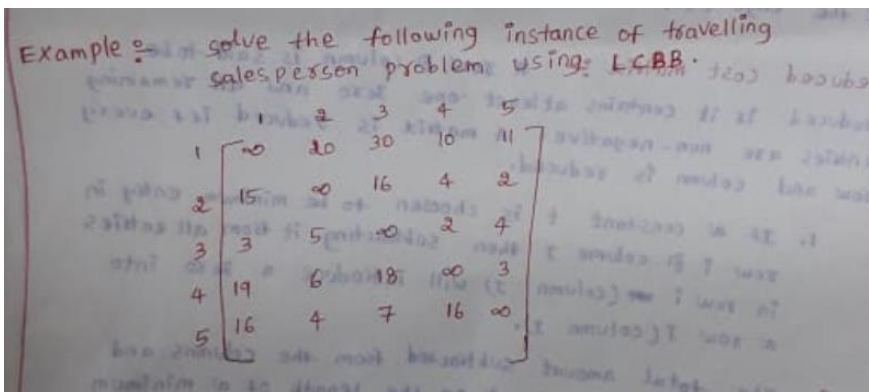 Example :- solve the following instance of travelling
salesperson problem using LCBB.
1 2 3 4 5
1 ∞ 20 30 10 11
2 15 ∞ 16 4 2
3 3 5 ∞ 2 4
4 19 6 18 ∞ 3
5 16 4 7 16 ∞